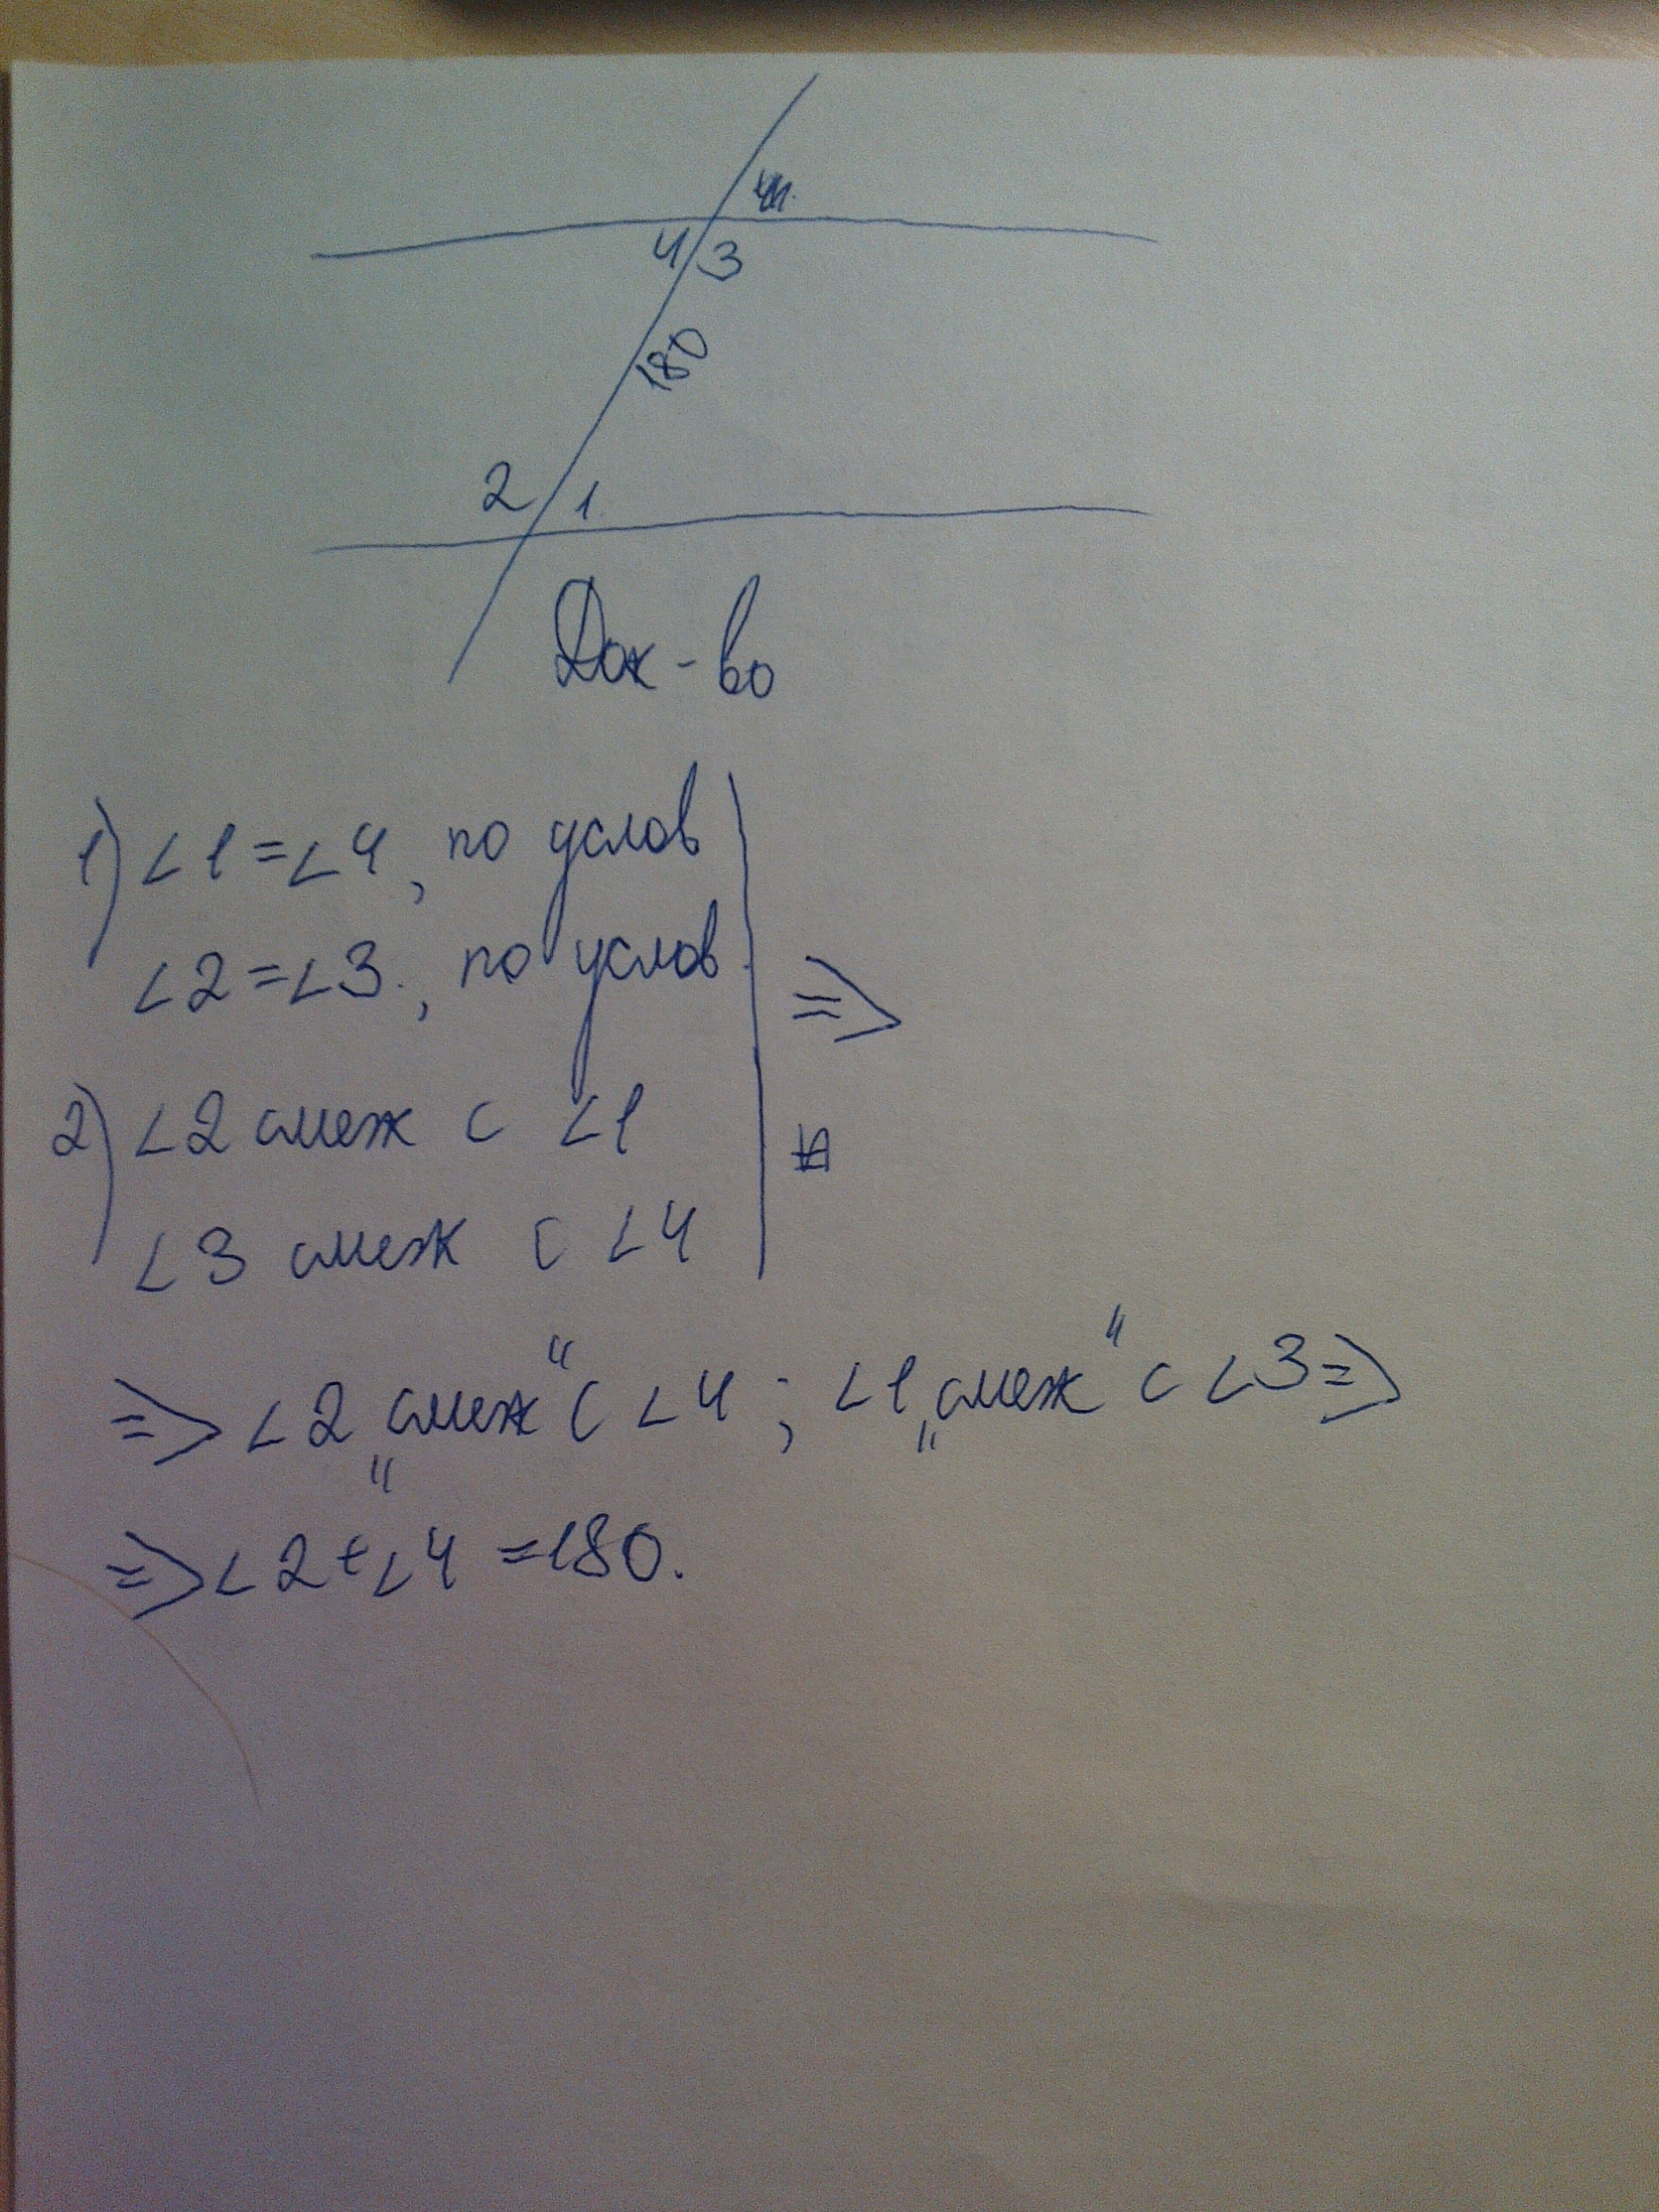 4 3
180
2 1
Док-во
1) ∠1=∠4, по услов
∠2=∠3., по услов.
=>
2) ∠2 смеж с ∠1
∠3 смеж с ∠4
=> ∠2 „смеж" с ∠4 ; ∠1 „смеж" с ∠3 =>
=> ∠2+∠4 =180.